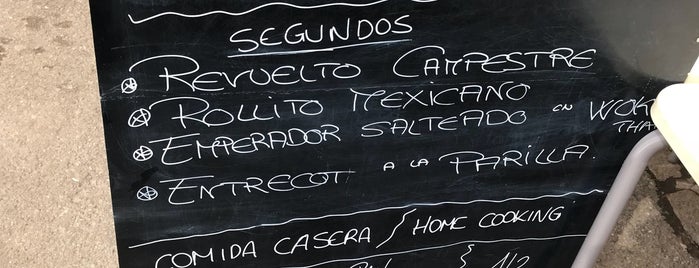 SEGUNDOS
REVUELTO CAMPESTRE
ROLLITO MEXICANO
EMPERADOR SALTEADO en WOK
THAI
ENTRECOT A LA PARILLA.
COMIDA CASERA / HOME COOKING
1/2